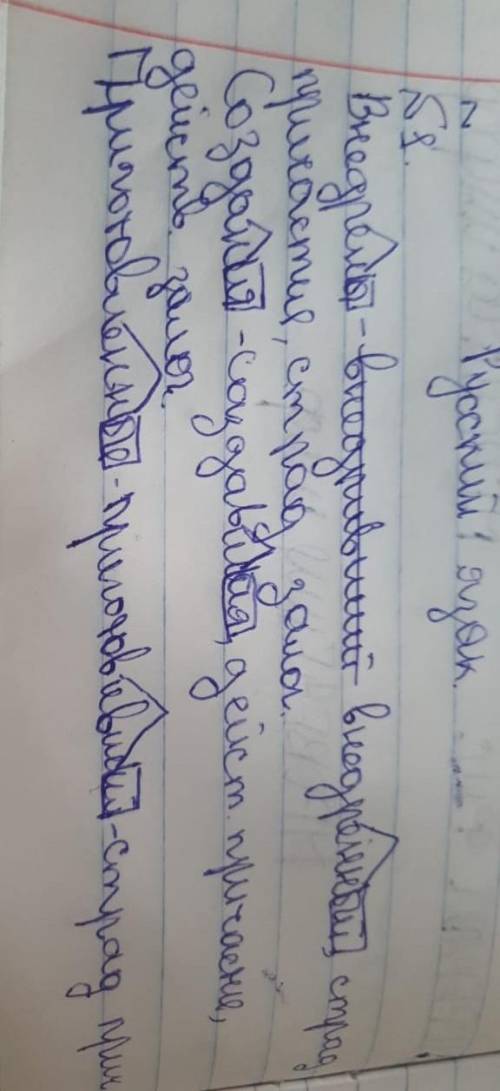 Русский язык.
№1.
Внедрены - внедривший внедренный, страд
причастие, страд залог.
Создавшая, дейст. причастие,
действ. залог.
Приготовленные - приготовивший - страд прич